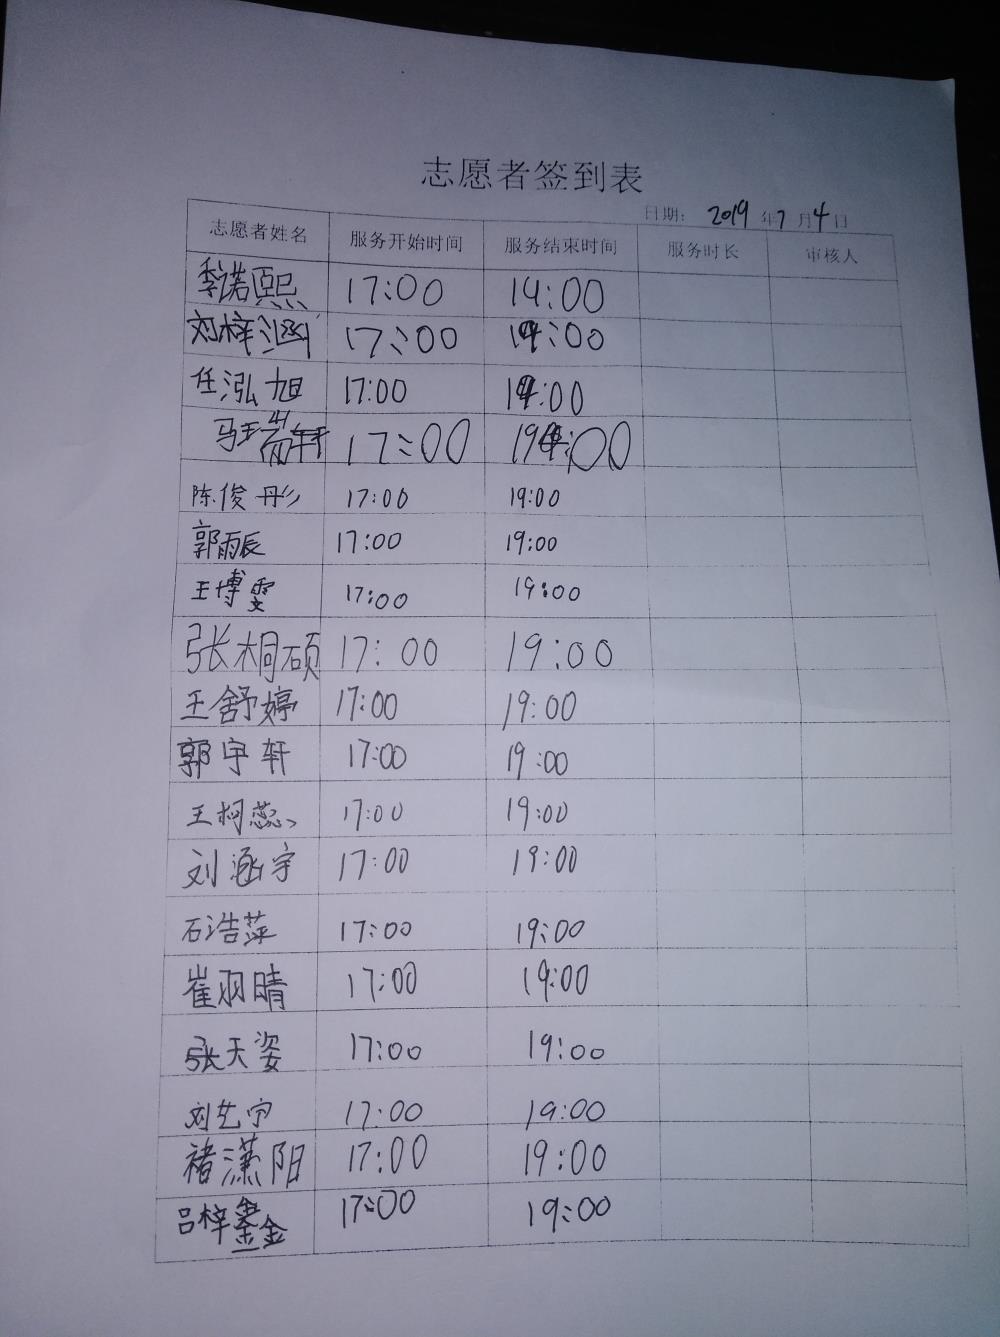 志愿者签到表
日期: 2019 年 7 月 4 日
志愿者姓名 服务开始时间 服务结束时间 服务时长 审核人
李诺熙 17:00 14:00
刘梓涵 17:00 19:00
任泓旭 17:00 19:00
马瑞轩 17:00 19:00
陈俊彤 17:00 19:00
郭雨辰 17:00 19:00
王博雯 17:00 19:00
张桐硕 17:00 19:00
王舒婷 17:00 19:00
郭宇轩 17:00 19:00
王柯蕊 17:00 19:00
刘涵宇 17:00 19:00
石浩萍 17:00 19:00
崔羽晴 17:00 19:00
张天姿 17:00 19:00
刘艺宁 17:00 19:00
褚潇阳 17:00 19:00
吕梓鑫 17:00 19:00